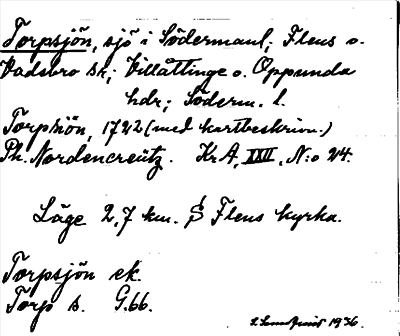 Torpsjön, sjö i Södermanl; Flens o.
Vadsbro sk; Villåttinge o. Oppunda
hdr; Söderm. l.
Torpsiön, 1722 (med kartbeskrivn.)
Ph. Nordencreütz. Kr A, XXII, N:o 24.
Läge 2,7 km. S Flens kyrka.
Torpsjön ek.
Torp s. G.66.
1936.